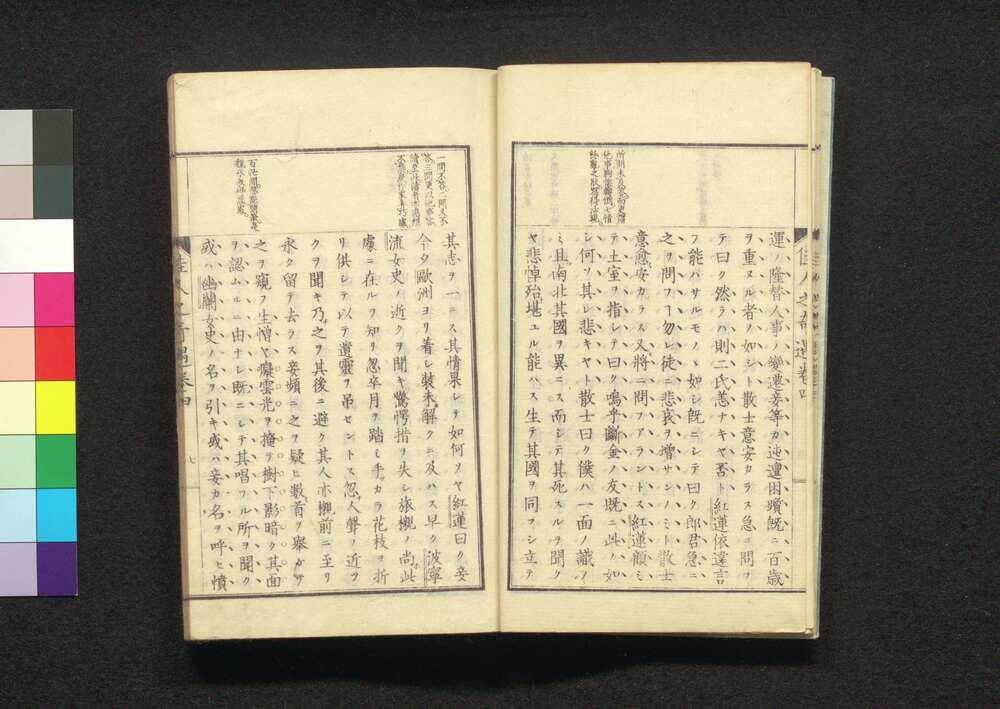 佳人之奇遇卷四
運ノ隆替人事ノ變遷妾等カ迍邅困躓既ニ百歳
ヲ重ヌル者ノ如シト散士意安カラス急ニ問フ
テ曰ク然ラハ則二氏恙ナキヤ否ト紅蓮依違言
フ能ハサルモノヽ如シ既ニシテ曰ク郎君急ニ
之ヲ問フヿ勿レ徒ニ悲哀ヲ增サンノミト散士
意愈安カラス又將ニ問フアラントス紅蓮顧ミ
テ土室ヲ指シテ曰ク嗚乎斷金ノ友既ニ此ノ如
シ何ソ其レ悲キヤト散士曰ク僕ハ一面ノ識ノ
ミ且南北其國ヲ異ニス而シテ其死スルヲ聞ク
ヤ悲悼殆堪ユル能ハス生テ其國ヲ同フシ立テ
其志ヲ一ニス其情果シテ如何ヲヤ紅蓮曰ク妾
今夕歐洲ヨリ着シ裝未解クニ及ハス早ク波寧
流女史ノ逝クヲ聞キ驚愕措ヲ失シ旅櫬ノ尚此
處ニ在ルヲ知リ忽卒月ヲ踏ミ手カラ花枝ヲ折
リ供シテ以テ遺靈ヲ吊セントス忽人聲ノ近ツ
クヲ聞キ乃之ヲ其後ニ避ク其人亦櫬前ニ至リ
永ク留テ去ラス妾頻ニ之ヲ疑ヒ數首ヲ舉ケテ
之ヲ窺フ生憎ヤ癡雲光ヲ掩ヲ樹下影暗ク其面
ヲ認ムルニ由ナシ既ニシテ其唱フル所ヲ聞ク
或ハ幽蘭女史ノ名ヲ引キ或ハ妾カ名ヲ呼ヒ憤
佳人之奇遇卷四